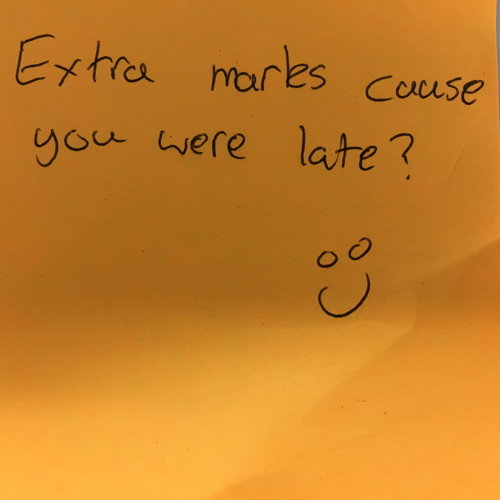 Extra marks cause
you were late?